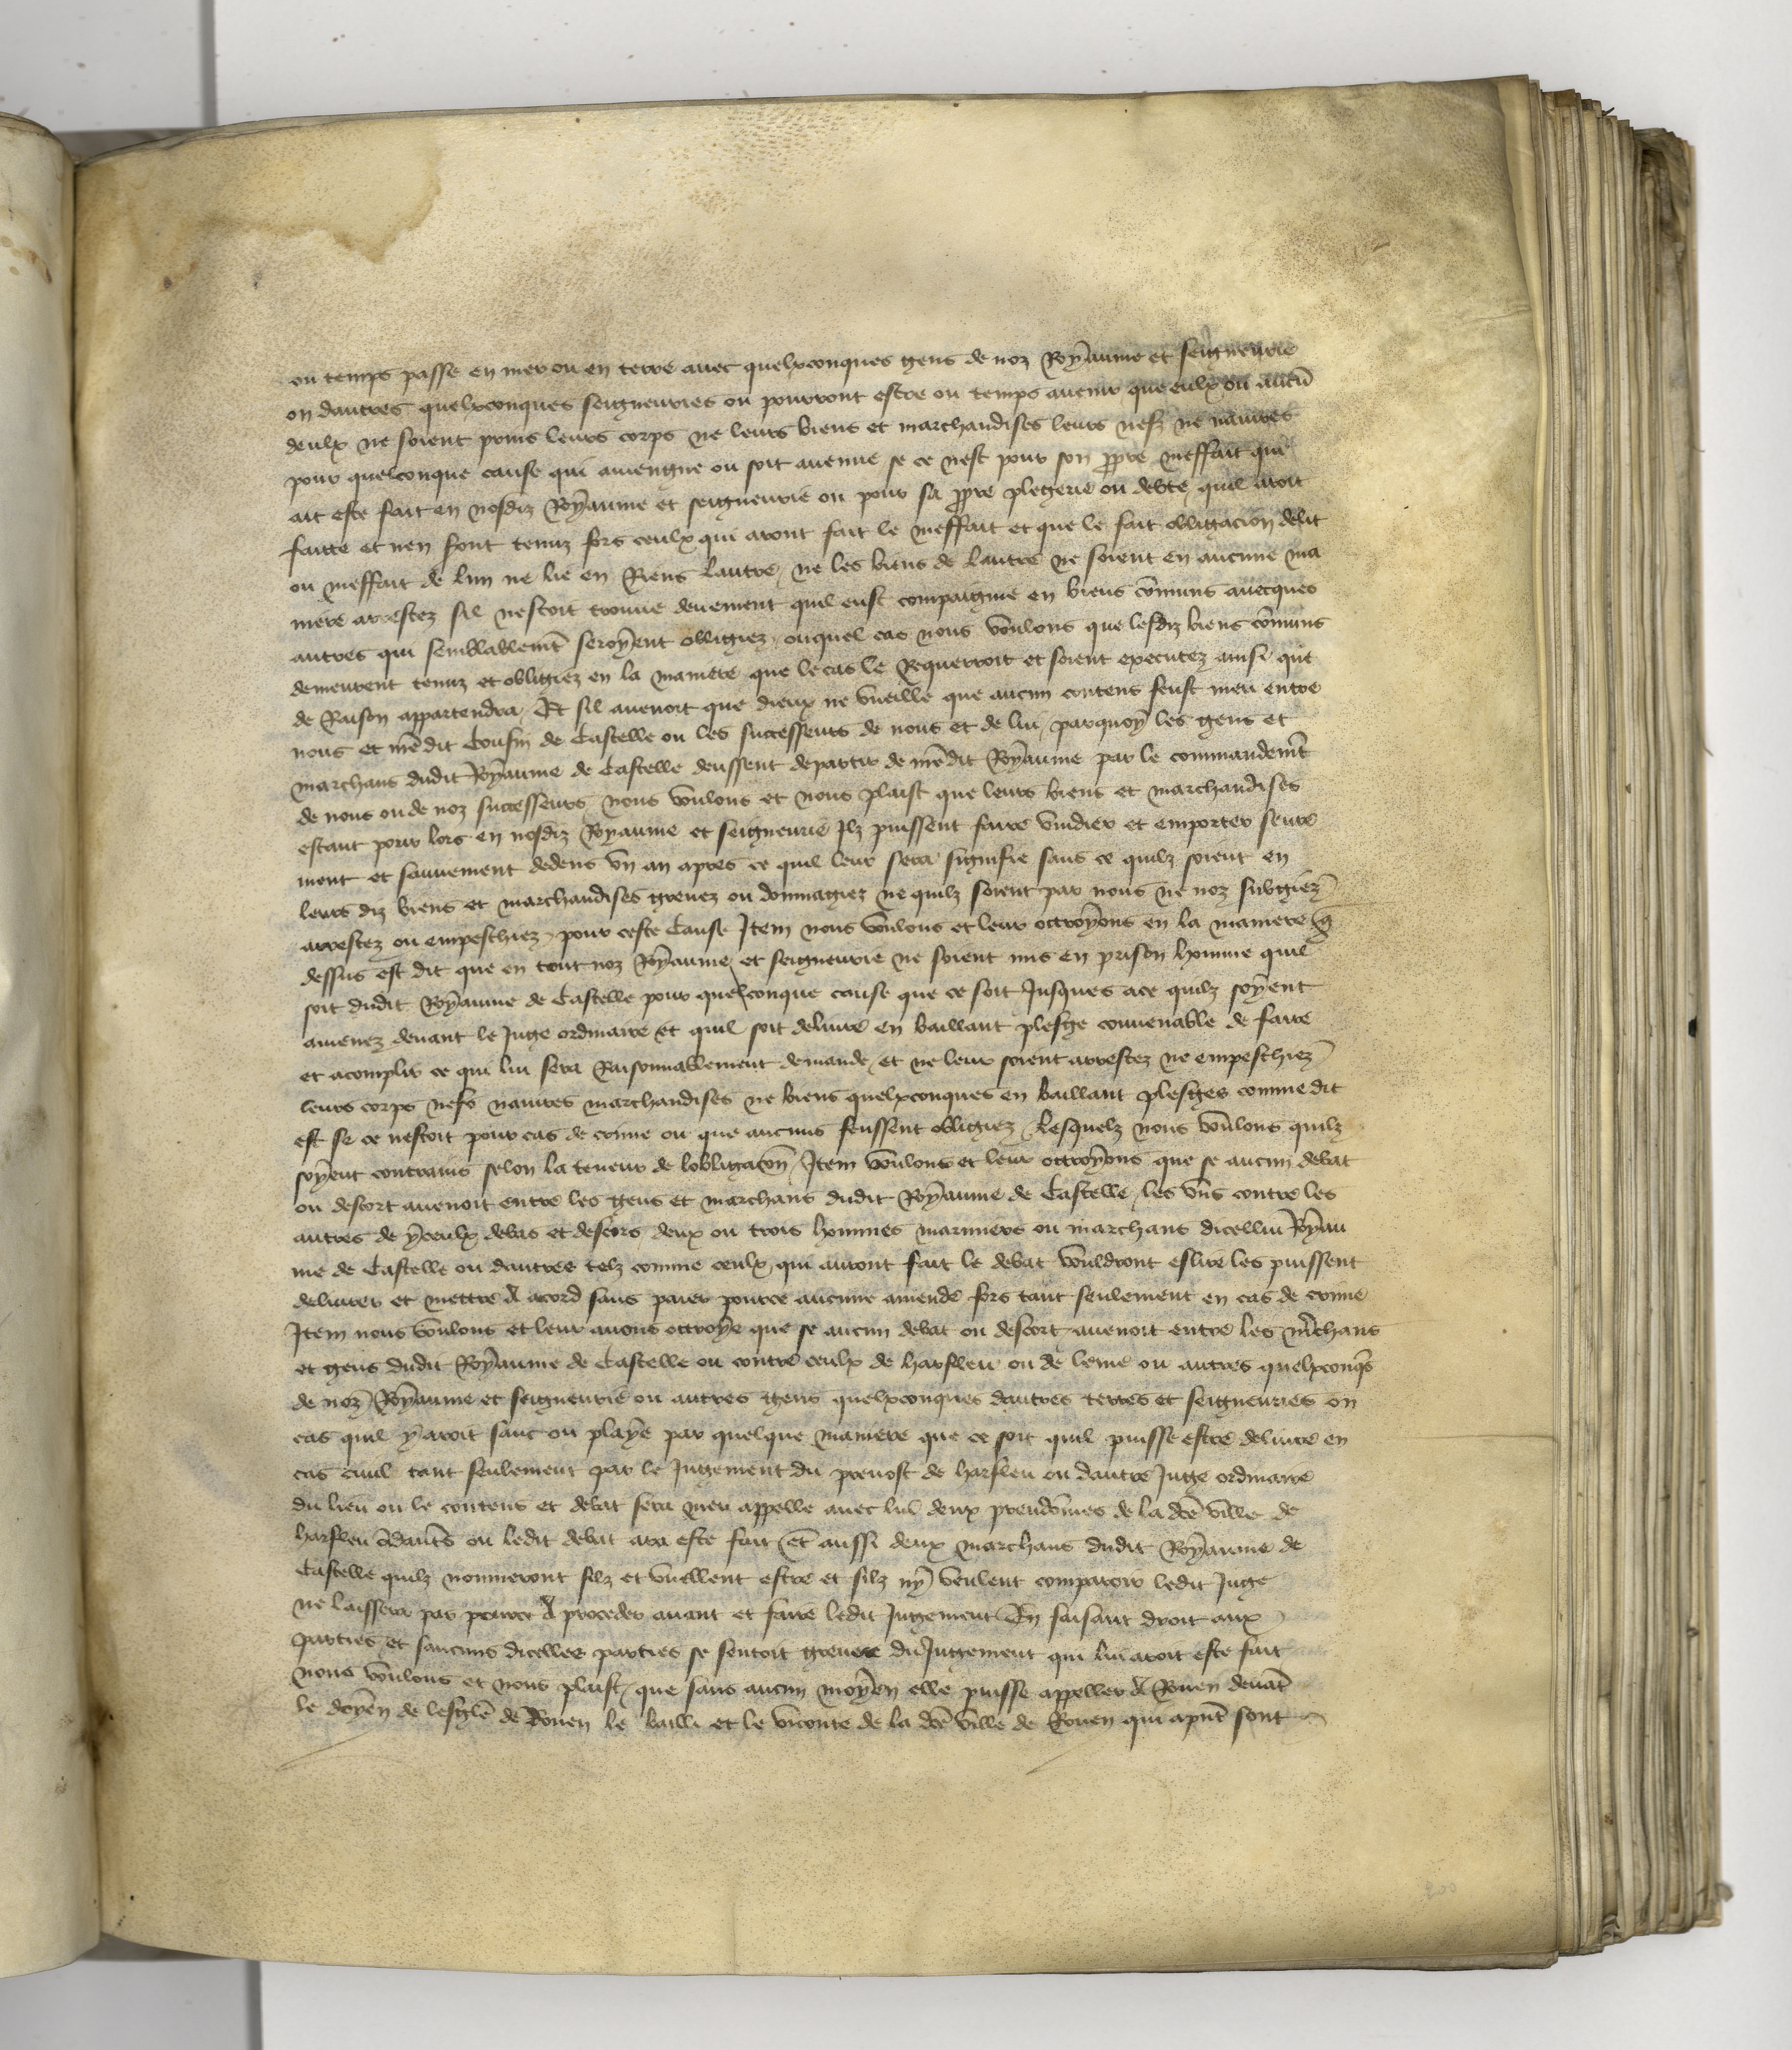 ou temps passe en mer ou en terre avec quelxconques gens de noz Royaume et seigneurie
ou dautres quelxconques seigneuries ou pourront estre ou temps avenir que eulx ou aucũ
deulx ne soient prins leurs corps ne leurs biens et marchandises leurs nefz ne navires
pour quelconque cause qui aviengne ou soit avenue se ce nest pour son ppre meffait qui
ait este fait en nosdiz Royaume et seigneurie ou pour sa ppre plegerie ou debte quil aroit
faitte et nen sont tenuz fors ceulx qui aront fait le meffait et que le fait obligacion delit
ou meffait de lun ne lie en Riens lautre, ne les biens de lautre ne soient en aucune ma
niere arrestez sil nestoit trouve deuement quil eust compaignie en biens cõmuns avecques
autres qui semblablemt seroyent obligiez, ouquel cas nous voulons que lesdiz biens cõmuns
demeurent tenuz et obligiez en la maniere que le cas le Requerroit et soient executez ainsi que
de Raison appartendra, Et sil avenoit que dieux ne vueille que aucun contens feust meu entre
nous et nredit Cousin de Castelle ou les successeurs de nous et de lui, parquoy les gens et
marchans dudit Royaume de Castelle deussent departir de nredit Royaume par le commandemt
de nous ou de noz successeurs nous voulons et nous plaist que leurs biens et marchandises
estant pour lors en nosdiz Royaume et seigneurie Ilz puissent faire vuidier et emporter seure
ment et sauvement dedens un an apres ce quil leur sera signifie sans ce quilz soient en
leurs diz biens et marchandises grevez ou dommagiez ne quilz soient par nous ne noz subgiez
arrestez ou empeschiez pour ceste Cause Item nous voulons et leur octroyons en la maniere q̃
dessus est dit que en tout noz Royaume et seigneurie ne soient mis en prison homme quil
soit dudit Royaume de Castelle pour quelconque cause que ce soit Jusques ace quilz soyent
amenez devant le Juge ordinaire et quil soit delivre en baillant plesge convenable de faire
et acomplir ce qui lui sera Raisonnablement demande, et ne leur soient arrestez ne empeschiez
leurs corps nefs navires marchandises ne biens quelxconques en baillant plesges comme dit
est se ce nestoit pour cas de crime ou que aucuns feussent obligiez, Lesquelz nous voulons quilz
soyent contrains selon la teneur de lobligacõn, Item voulons et leur octroyons que se aucun debat
ou descort avenoit entre les gens et marchans dudit Royaume de Castelle, les uns contre les
autres de yceulx debas et descors deux ou trois hommes mariniers ou marchans dicellui Royau
me de Castelle ou dautres telz comme ceulx qui auront fait le debat vouldront eslire les puissent
delivrer et mettre A acord sans paier pource aucune amende fors tant seulement en cas de crime
Item nous voulons et leur avons octroye que se aucun debat ou descort avenoit entre les mrchans
et gens dudit Royaume de Castelle ou contre ceulx de harfleu ou de leure ou autres quelxconqs
de noz Royaume et seigneurie ou autres gens quelxconques dautres terres et seigneuries ou
cas quil y aroit sanc ou playe par quelque maniere que ce soit quil puisse estre delivre en
cas civil tant seulement par le Jugement du prevost de harfleu ou dautre Juge ordinaire
du lieu ou le contens et debat sera meu appelle avec lui deux preudõmes de la dce ville de
harfleu ou ledit debat ara este fait Et aussi deux marchans dudit Royaume de
Castelle quilz nommeront silz et vuellent estre et silz ny veulent comparoir ledit Juge
ne laissera pas pource A proceder avant et faire ledit Jugement En faisant droit aux
parties, et saucuns dicelles parties se sentoit grevee du Jugement qui lui aroit este fait
nous voulons et nous plaist, que sans aucun moyen elle puisse appeller A Rouen devãt
le doyen de leglise de Rouen le bailli et le viconte de la dce ville de Rouen qui apnt sont